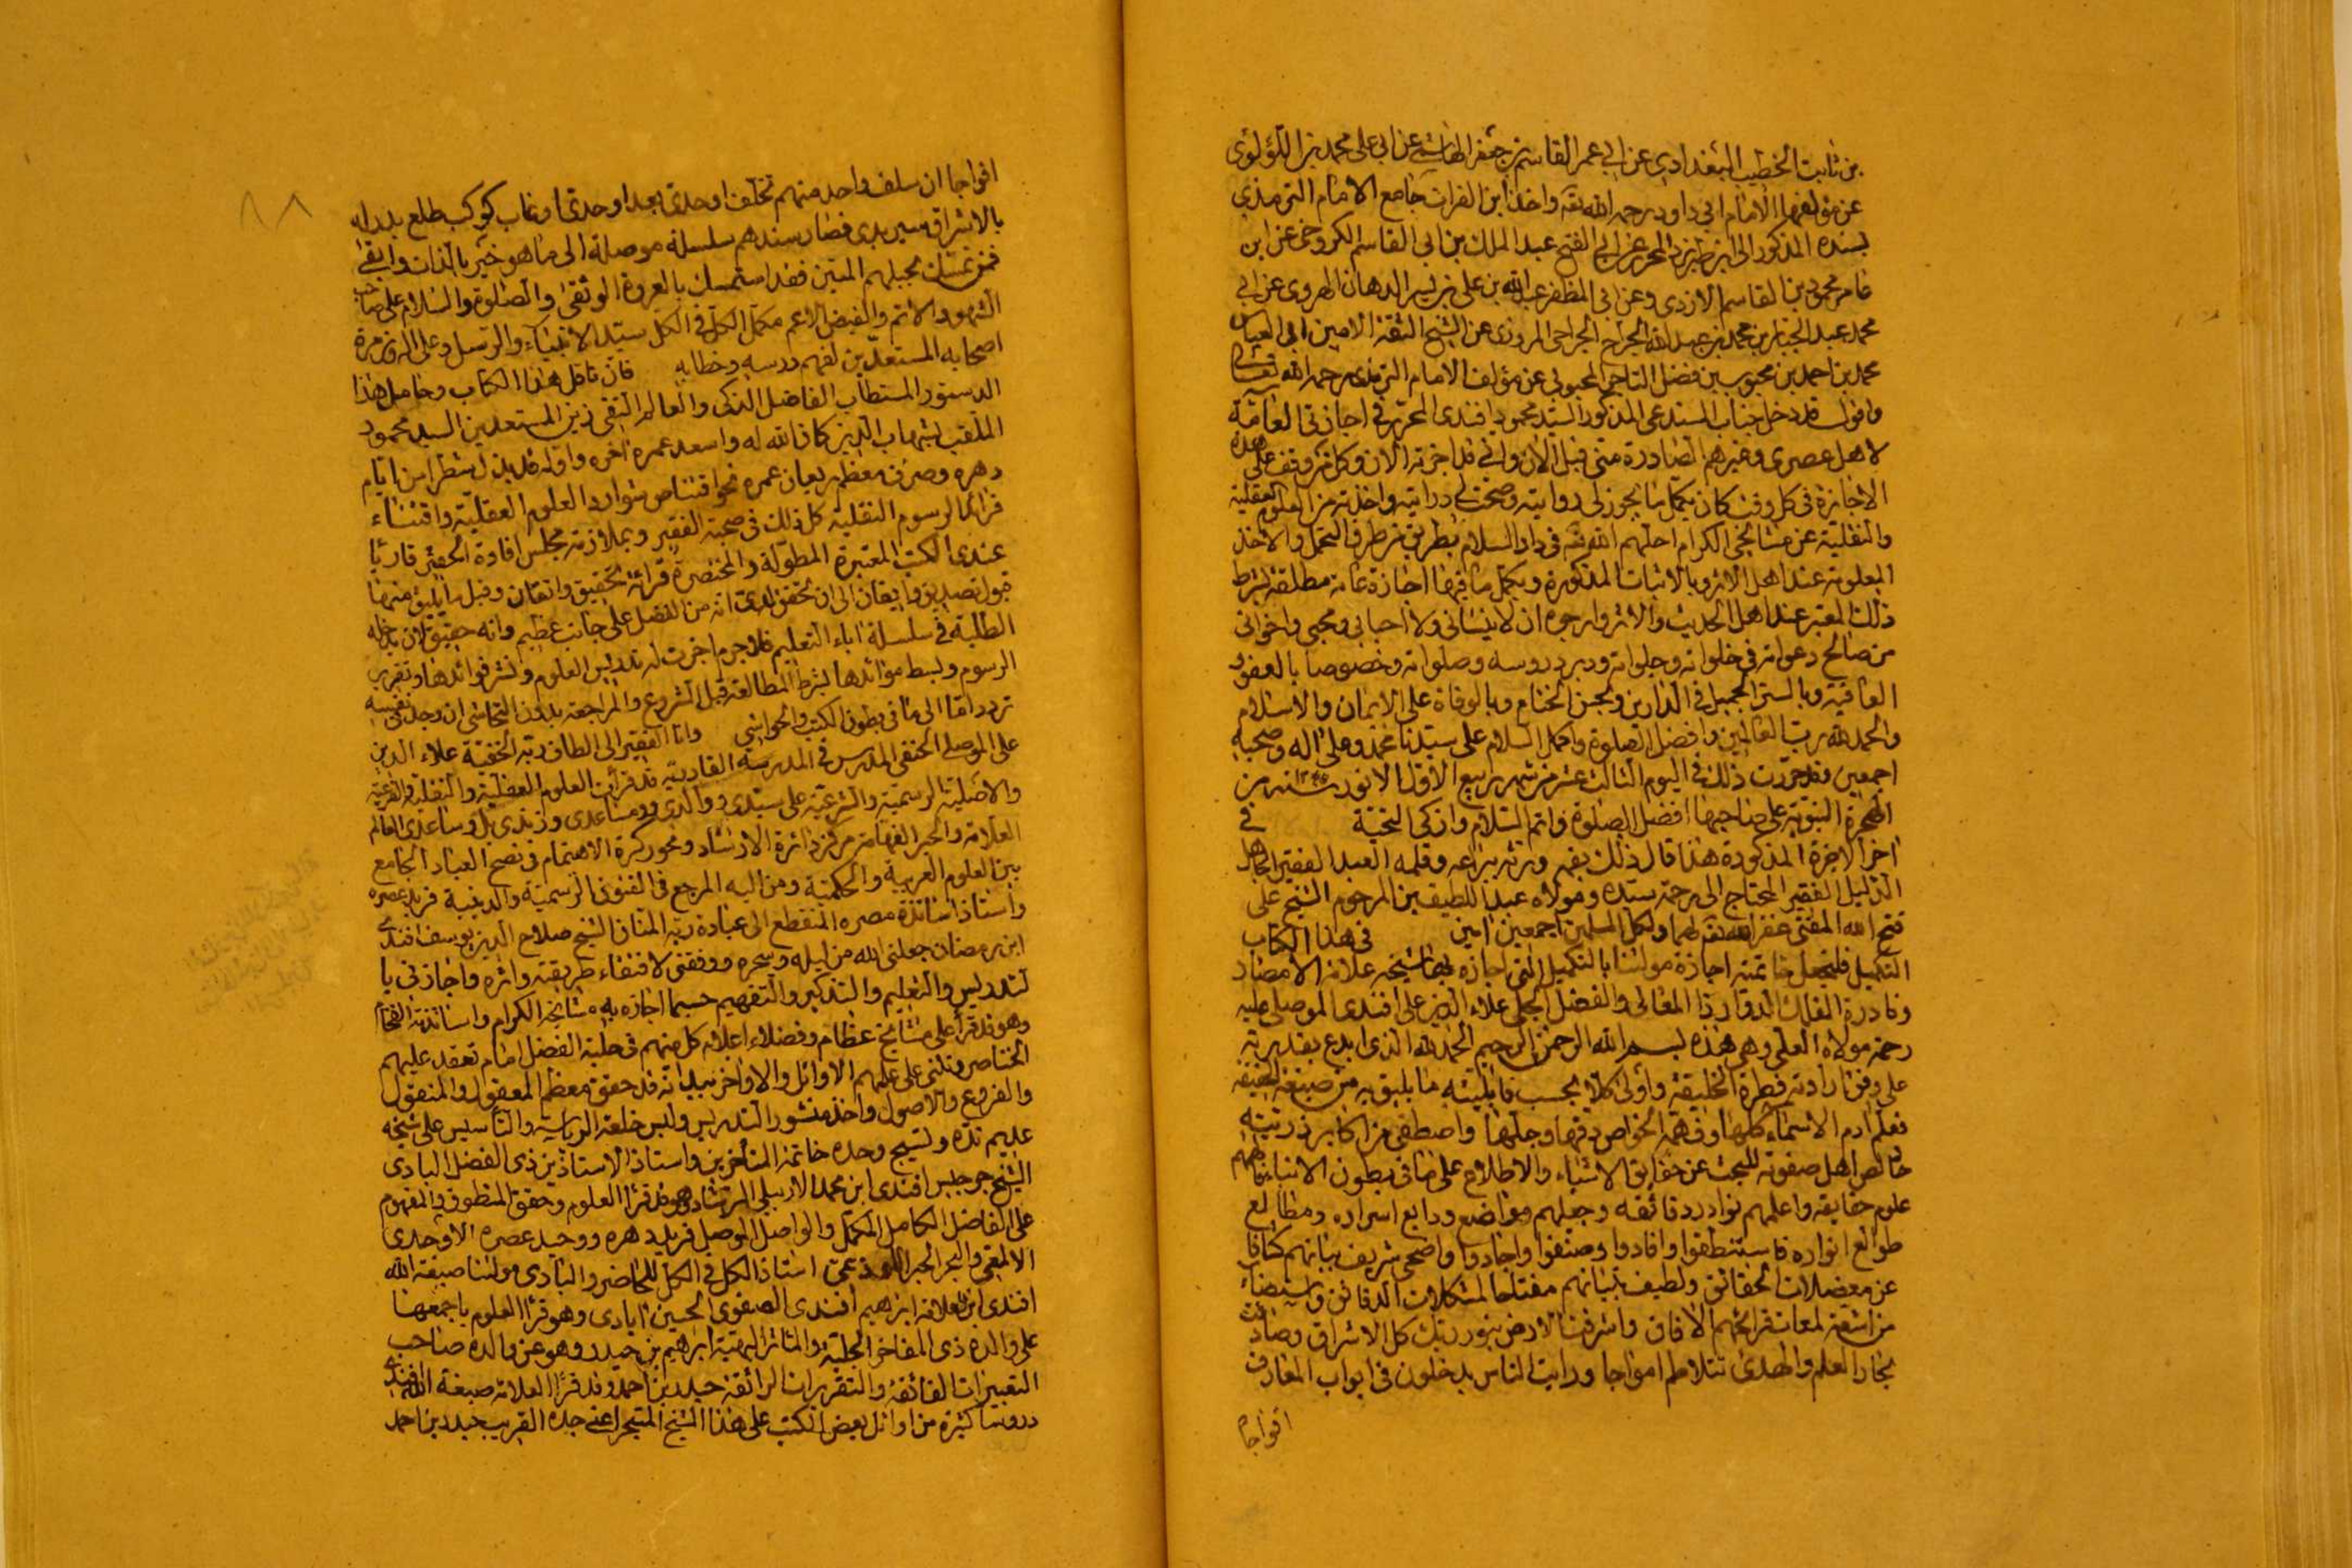 بن ثابت الخطيب البغدادي عن ابي عمر القاسم بن جعفر الهاشمي عن ابي علي محمد بن اللؤلؤى
عن مؤلفها الامام ابي داود رحمه الله تعه واخذ ابن الفرات جامع الامام الترمذي
بسنده المذكور الى ابن طبرزد المحرر عن ابي الفتح عبد الملك بن ابي القاسم الكروخى عن ابن
عامر محمود بن القاسم الازدى وعن ابى المظفر عبد الله بن علي بن يس الدهان الهروى عن ابي
محمد عبد الجبار بن محمد بن عبد الله الجراح الجراحى المروزى عن الشيخ الثقة الامين ابى العباس
محمد بن احمد بن محبوب بن فضل التاجر المحبوبى عن مؤلفه الامام الترمذى رحمه الله تعالى
واقول قد دخل جناب المستدعى المذكور السيد محمود افندى المحرر في اجازتى العامة
لاهل عصرى وغيرهم الصادرة منى قبل الان وانى قد اجزته الان وكل من وقف على هذه
الاجازة فى كل وقت كان بكل ما يجوز لى روايته وصحت لى درايته واخذته من العلوم العقلية
والنقلية عن مشايخى الكرام احلهم الله تعه فى دار السلام بطريق من طرق التحمل والاخذ
المعلومة عند اهل الاثر وبالاثبات المذكورة وبكل ما فيها اجازة عامة مطلقة بشرط
ذلك المعتبر عند اهل الحديث والاثر وارجوه ان لا ينسانى ولا احبابى ومحبى واخوانى
من صالح دعواته فى خلواته وجلواته ودبر دروسه وصلواته وخصوصا بالعفو و
العافية وبالستر الجميل فى الدارين وبحسن الختام وبالوفاة على الايمان والاسلام
والحمد لله رب العالمين وافضل الصلوة واكمل السلام على سيدنا محمد وعلى اله وصحبه
اجمعين وقد حررت ذلك فى اليوم الثالث عشر من شهر ربيع الاول الانور سنة من
الهجرة النبوية على صاحبها افضل الصلوة واتم السلام وازكى التحية فى
اخر الاجزة المذكورة هذا قال ذلك بفمه وزبره بيراعه وقلمه العبد الفقير الجاهل
الذليل الفقير المحتاج الى رحمة سيده ومولاه عبد اللطيف بن المرحوم الشيخ على
فتح الله المفتى غفر الله تعه لهما ولكل المسلمين اجمعين امين فى هذا الكتاب
التكميل فلنجعل خاتمته اجازة مولنا بالتكميل التى اجازه بها شيخه علامة الامصار
ونادرة الفلك الدوار ذا المعالى والفضل الجلى علاء الدين على افندى الموصلى عليه
رحمة مولاه العلى وهى هذه بسم الله الرحمن الرحيم الحمد لله الذى ابدع بقدرته
على وفق ارادته فطرة الخليقة واولى كلا بحسب قابليته ما يليق به من صبغة الحقيقة
فعلم ادم الاسماء كلها وفهمه الخواص دقها وجلها واصطفى من اكابر ذريته
خالص اهل صفوته للبحث عن حقايق الاشياء والاطلاع على ما فى بطون الانباء فالهمهم
علوم حقايقه واعلمهم نوادر دقائقه وجعلهم مواضع ودايع اسراره ومطالع
طوالع انواره فاستنطقوا وافادوا وصنفوا واجادوا واضحى شريف بيانهم كشافا
عن معضلات الحقائق ولطيف تبيانهم مفتاحا لمشكلات الدقائق واستضاءت
من اشعة لمعات قرائحهم الافاق واشرقت الارض بنور ربك كل الاشراق وصارت
بحار العلم والهدى تتلاطم امواجا ورايت الناس يدخلون فى ابواب المعارف
افواجا
افواجا ان سلف واحد منهم تخلف اوحدى بعد اوحدى او غاب كوكب طلع بدر له
بالاشراق سير بدى فصار سندهم سلسلة موصلة الى ما هو خير بالذات وابقى
فمن تمسك بحبلهم المتين فقد استمسك بالعروة الوثقى والصلوة والسلام على صاحب
الشهود الاتم والفيض الاعم مكمل الكل فى الكل سيد الانبياء والرسل وعلى اله وزمرة
اصحابه المستعدين لفهم درسه وخطابه فان ناقل هذا الكتاب وحامل هذا
الدستور المستطاب الفاضل الذكى والعالم التقى زين المستعدين السيد محمود
الملقب بشهاب الدين كان الله له واسعد عمره اخره واوله قد بذل شطرا من ايام
دهره وصرف معظم ريعان عمره نحو اقتناص شوارد العلوم العقلية واقتناء
فرائد الرسوم النقلية كل ذلك فى صحبة الفقير وبملازمة مجلس افادة الحقير قاريا
عندى الكتب المعتبرة المطولة والمختصرة قرائة تحقيق واتقان وقبل ما يليق منها
قبول تصديق وايقان الى ان تحقق لدى انه من الفضل على جانب عظيم وانه حقيق لان يدخله
الطلبة فى سلسلة اباء التعليم فلا جرم اجزت له تدريس العلوم ونشر فوائدها وتقرير
الرسوم وبسط موائدها بشرط المطالعة قبل الشروع والمراجعة بدون التحاشى ان وجد فى نفسه
ترددا الى ما فى بطون الكتب والحواشى وانا الفقير الى الطاف ربه الخفية علاء الدين
على الموصلى الحنفى المدرس فى المدرسة القادرية قد قرأت العلوم العقلية والنقلية والفرعية
والاصلية الرسمية والشرعية على سيدى ووالدى ومساعدى وزندى بل وساعدى العالم
العلامة والحبر الفهامة مركز دائرة الارشاد ومحور كرة الاهتمام فى نصح العباد الجامع
بين العلوم العربية والحكمية ومن اليه المرجع فى الفنون الرسمية والدينية فريد عصره
واستاذ اساتذة مصره المنقطع الى عبادة ربه المنان الشيخ صلاح الدين يوسف افندى
ابن رمضان جعلنى الله من ليله وسحره ووفقنى لاقتفاء طريقته واثره واجازنى با
لتدريس والتعليم والتذكير والتفهيم حسبما اجازه به مشايخه الكرام واساتذته الفخام
وهو قد قرأ على مشايخ عظام وفضلاء اعلام كل منهم فى حلبة الفضل امام تعقد عليهم
الخناصر ويثنى على علمهم الاوائل والاواخر بيد انه قد حقق معظم المعقول والمنقول
والفروع والاصول واخذ منشور التدريس ولبس خلعة الرياسة والتأسيس على شيخه
عديم نده ونسيج وحده خاتمة المتأخرين واستاذ الاستاذين ذى الفضل البادى
الشيخ جرجيس افندى ابن محمد الاربيلى الرشادى وهو قد قرأ العلوم وحقق المنطوق والمفهوم
على الفاضل الكامل المكمل والواصل الموصل فريد دهره ووحيد عصره الاوحدى
الالمعى والبحر الحبر اللوذعى استاذ الكل فى الكل للحاضر والبادى مولنا صبغة الله
افندى ابن العلامة ابراهيم افندى الصفوى الحسين ابادى وهو قرأ العلوم باجمعها
على والده ذى المفاخر الجلية والمآثر البهية ابراهيم بن حيدر وهو عن والده صاحب
التعبيرات الفائقة والتقريرات الرائقة حيدر بن احمد وقد قرأ العلامة صبغة الله افندى
دروسا كثيرة من اوائل بعض الكتب على هذا الشيخ المتبحر اعنى جده القريب حيدر بن احمد